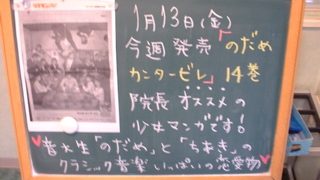 1月13日(金)
今週発売「のだめ
カンタービレ」14巻
院長オススメの
少女マンガです!
♥音大生「のだめ」と「ちあき」の
クラシック音楽いっぱいの恋愛物♥